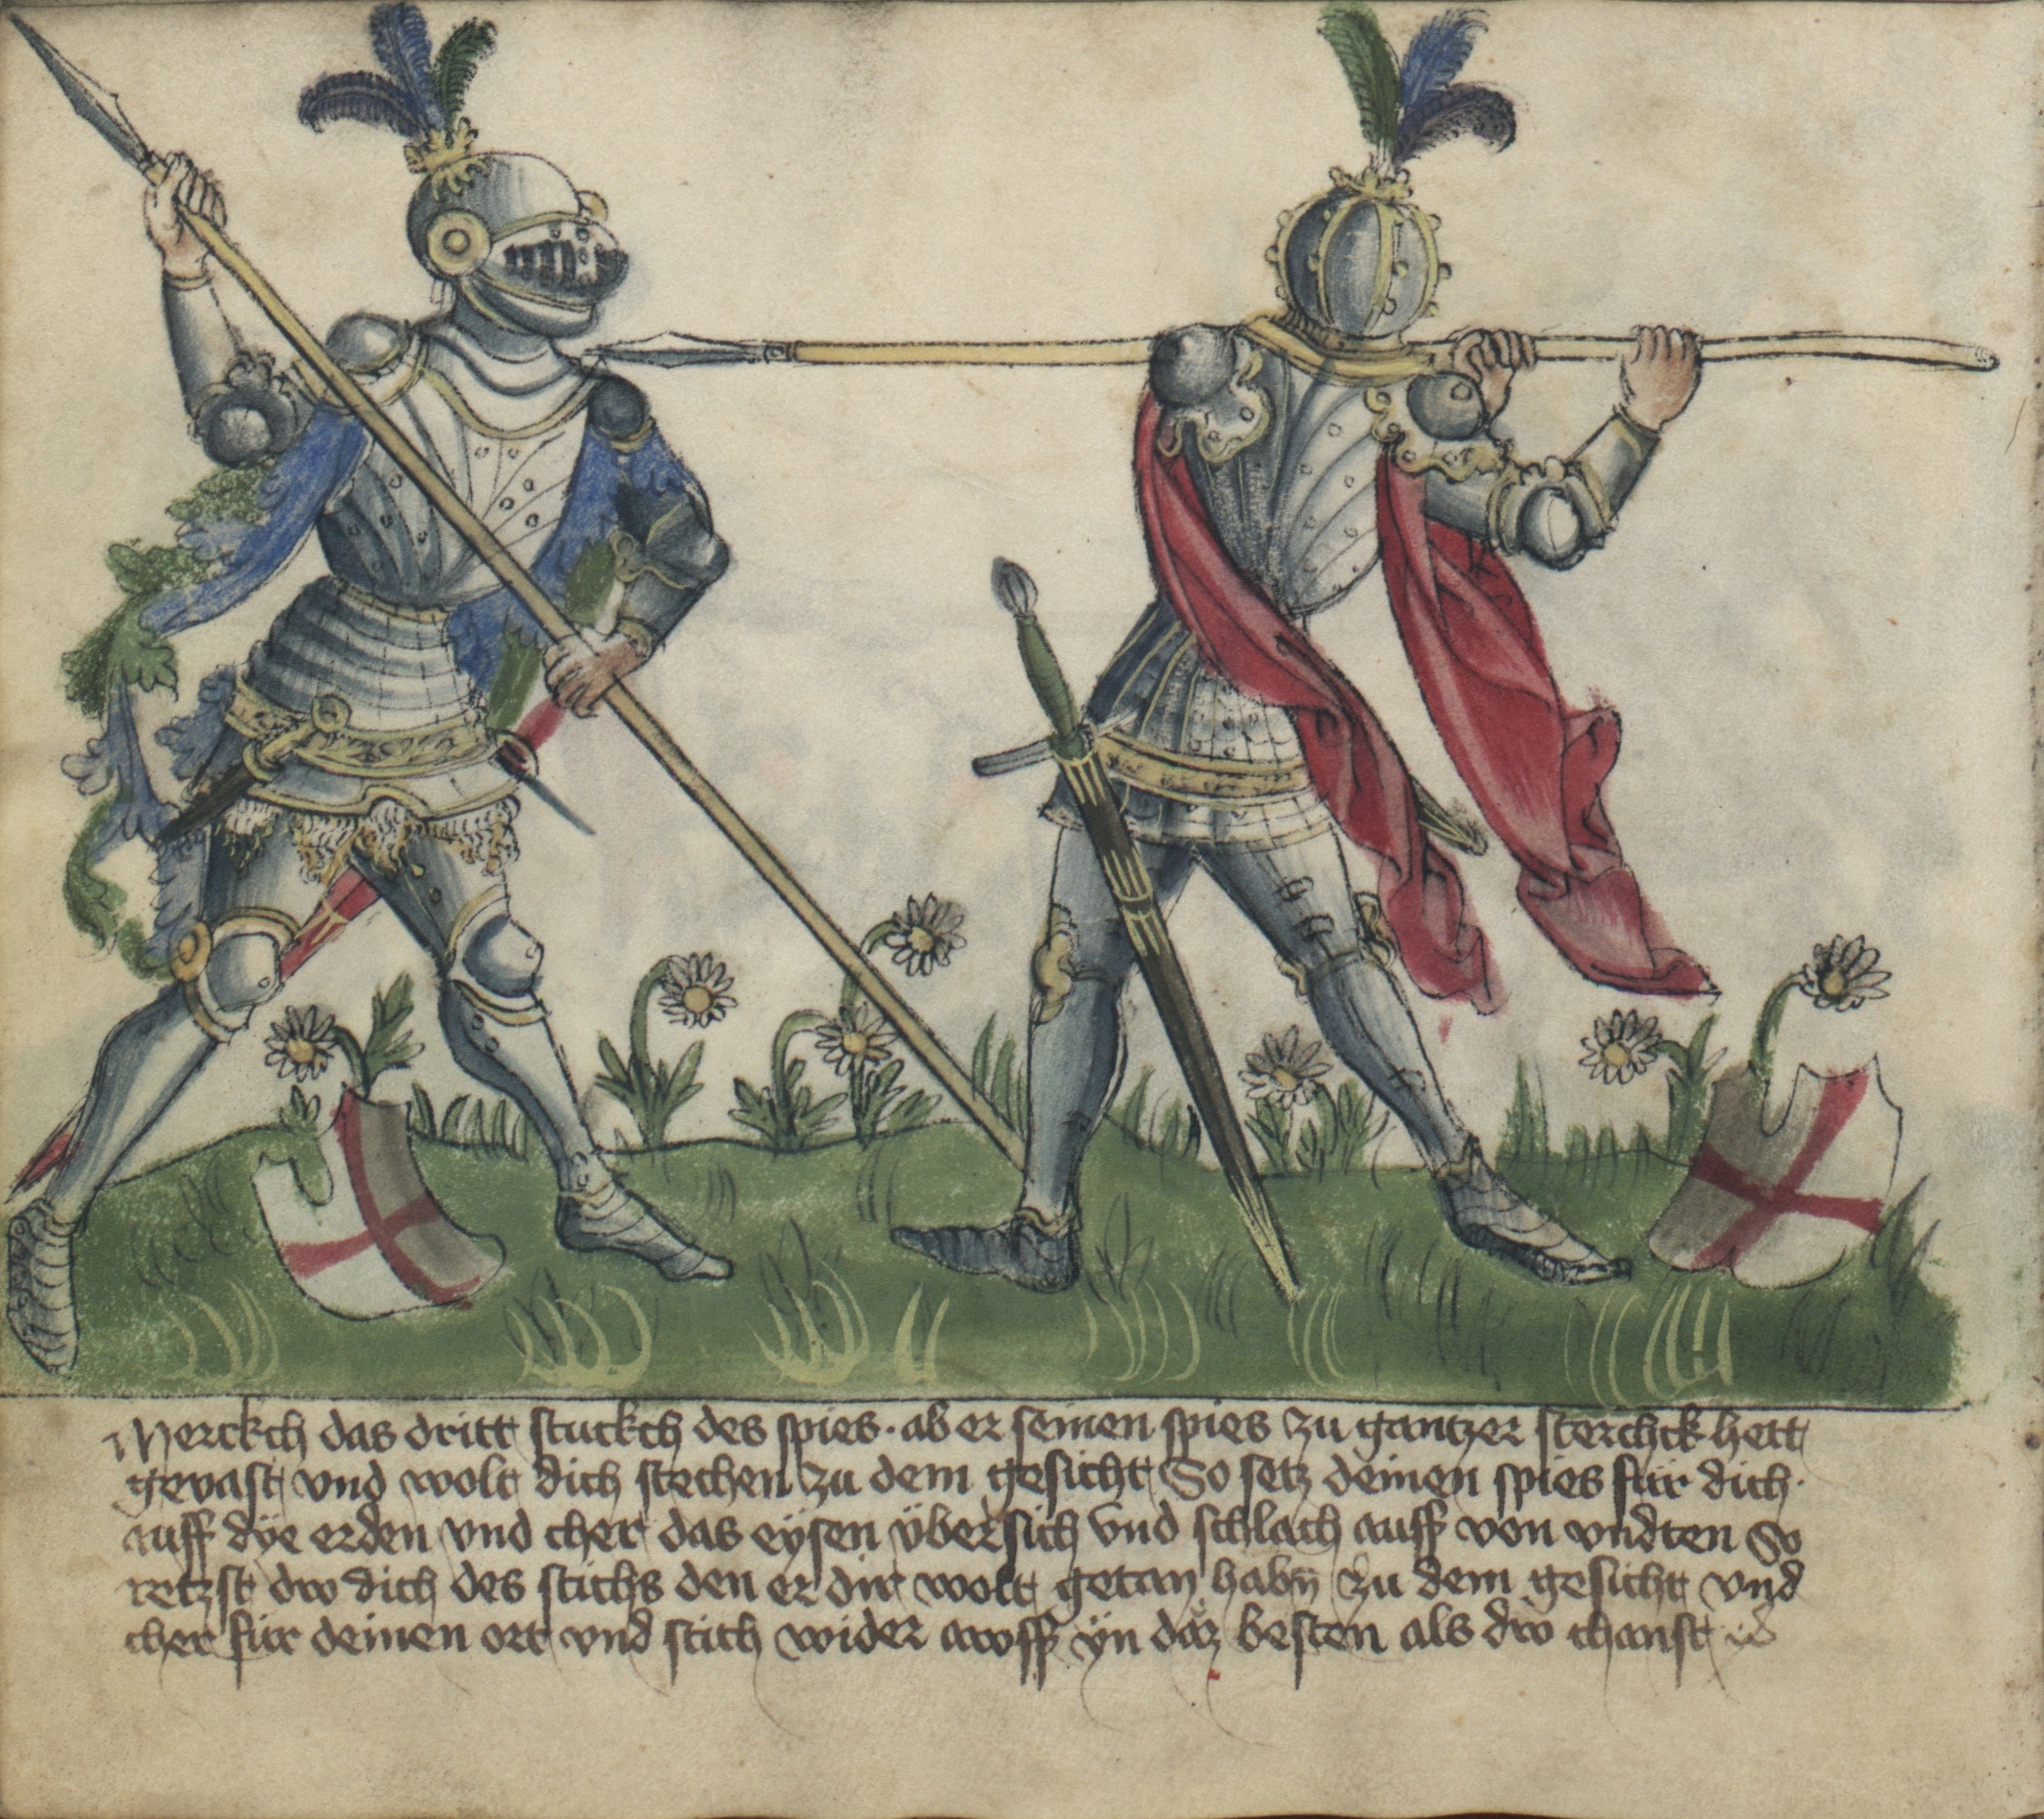 Merckch das dritt stuckch des spies · ab er seinen spies zu gantzer sterchck hett
gevast vnd wolt dich stechen zu dem gesicht So setz deinen spies für dich ·
auff dÿe erden vnd cher das eÿsen übersich vnd schlach auff von vndten So
retzst dw dich des stichs den er dir wolt getan habn̄ zu dem gesicht vnd
cher für deinen ort vnd stich wider awff ÿn daz besten als dw chanst